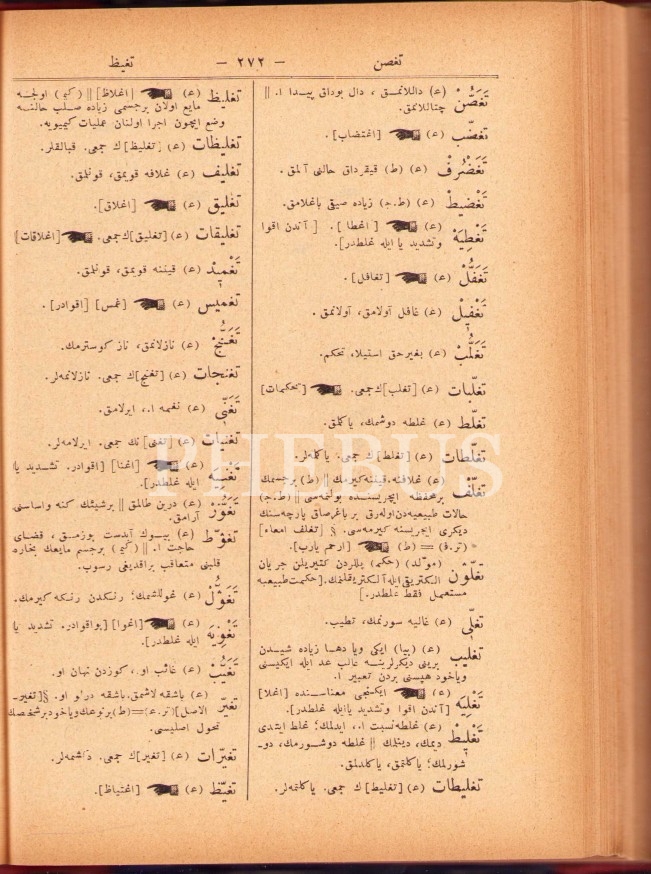 تغصن — ٢٧٢ — تغيظ
تَغَصُّنْ (ع) داللانمق ، دال بوداق پيدا ا. ||
چتاللانمق.
تغضّب (ع) [اغتضاب].
تَغَضْرُفْ (ع) (ط) قيقرداق حالنى آلمق.
تَغْضيطْ (ع) (ط.ج) زياده صيقى باغلامق.
تَغْطِيَه (ع) [اغطا]. [آندن اقوا
وتشديد يا ايله غلطدر].
تَغَفُّلْ (ع) [تغافل].
تَغْفيلْ (ع) غافل آولامق، آولانمق.
تَغَلُّبْ (ع) بغيرحق استيلاء تحكم.
تغلّبات (ع) [تغلب]ك جمعى. [تحكمات]
تغلّط (ع) غلطه دوشمك، ياكلمق.
تغلطات (ع) [تغلط]ك جمعى. ياكلمه لر.
تغلّف (ع) غلافنه، قيننه كيرمك || (ط) برجسمك
برمحفظه ايچريسنده بولنمه سى || (ط.ج)
حالات طبيعيه دن اوله رق بر باغرصاق پارچه سنك
ديكرى ايچريسنه كيرمه سى. § [تغلف امعاء]
(تر.ف) = (ط) [ارحم يارب].
تغلّون (مولد) (حكم) يللردن كتيريلن جريان
الكتريقى ايله آلكتريقلنمك. [حكمت طبيعيه
مستعمل فقط غلطدر].
تغلّى (ع) غاليه سورنمك، تطيب.
تغليب (ع) (بيا) ايكى ويا دها زياده شيدن
برينى ديكرلرينه غالب عد ايله ايكيسنى
وياخود هپسنى بردن تعبير ا.
تَغْلِيَه (ع) ايكنجى معناسنده [اغلا]
[آندن اقوا وتشديد يا ايله غلطدر].
تَغْليطْ (ع) غلطه نسبت ا.، ايدلمك؛ غلط ايتدى
ديمك، دينلمك || غلطه دوشورمك، دو-
شورلمك؛ ياكلتمق، ياكلدلمق.
تغليطات (ع) [تغليط]ك جمعى. ياكلتمه لر.
تغليظ (ع) [اغلاظ] || (كيم) اولجه
مايع اولان برجسمى زياده صلب حالنه
وضع ايچون اجرا اولنان عمليات كيميويه.
تغليظات (ع) [تغليظ]ك جمعى. قبالقلر.
تغليف (ع) غلافه قويمق، قونلمق.
تغليق (ع) [اغلاق].
تغليقات (ع) [تغليق]ك جمعى. [اغلاقات]
تَغْميدْ (ع) قيننه قويمق، قونلمق.
تغميس (ع) [غمس] [اقوادر].
تَغَنُّجْ (ع) نازلانمق، ناز كوسترمك.
تغنجات (ع) [تغنج]ك جمعى. نازلانمه لر.
تَغَنّى (ع) نغمه ا.، ايرلامق.
تغنيات (ع) [تغنى]نك جمعى. ايرلامه لر.
تَغْنِيَه (ع) [اغنا] [اقوادر. تشديد يا
ايله غلطدر].
تَغَوُّرْ (ع) درين طالمق || برشيئك كنه واساسنى
آرامق.
تغوّط (ع) بيوك آبدست بوزمق، قضاى
حاجت ا. || (كيم) برجسم مايعك بخاره
قلبنى متعاقب براقديغى رسوب.
تَغَوُّلْ (ع) غوللشمك؛ رنكدن رنكه كيرمك.
تَغْوِيَه (ع) [اغوا] [بو اقوادر. تشديد يا
ايله غلطدر].
تَغَيُّبْ (ع) غائب او.، كوزدن نهان او.
تغيّر (ع) باشقه لاشمق، باشقه درلو او. §[تغير-
الاصل](تر.ع)=(ط) برنوعك وياخود برشخصك
تحول اصليسى.
تغيّرات (ع) [تغير]ك جمعى. دكشمه لر.
تغيّظ (ع) [اغتياظ].
PHEBUS